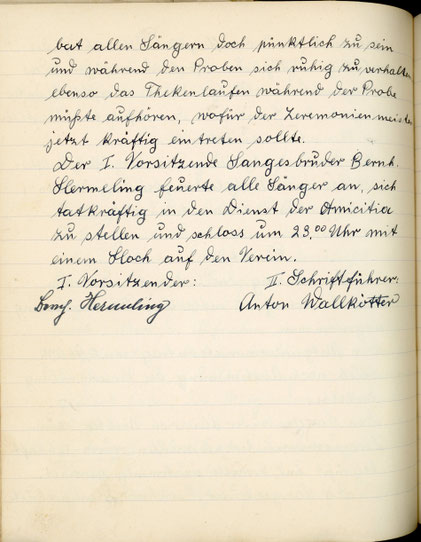 bat allen Sängern doch pünktlich zu sein
und während den Proben sich ruhig zu verhalten
ebenso das Thekenlaufen während der Probe
müßte aufhören, wofür der Zeremonienmeister
jetzt kräftig eintreten sollte.
Der I. Vorsitzende Sangesbruder Bernh.
Hermeling feuerte alle Sänger an, sich
tatkräftig in den Dienst der Amicitia
zu stellen und schloss um 23.00 Uhr mit
einem Hoch auf den Verein.
I. Vorsitzender: II. Schriftführer:
Hermeling Anton Wallkötter